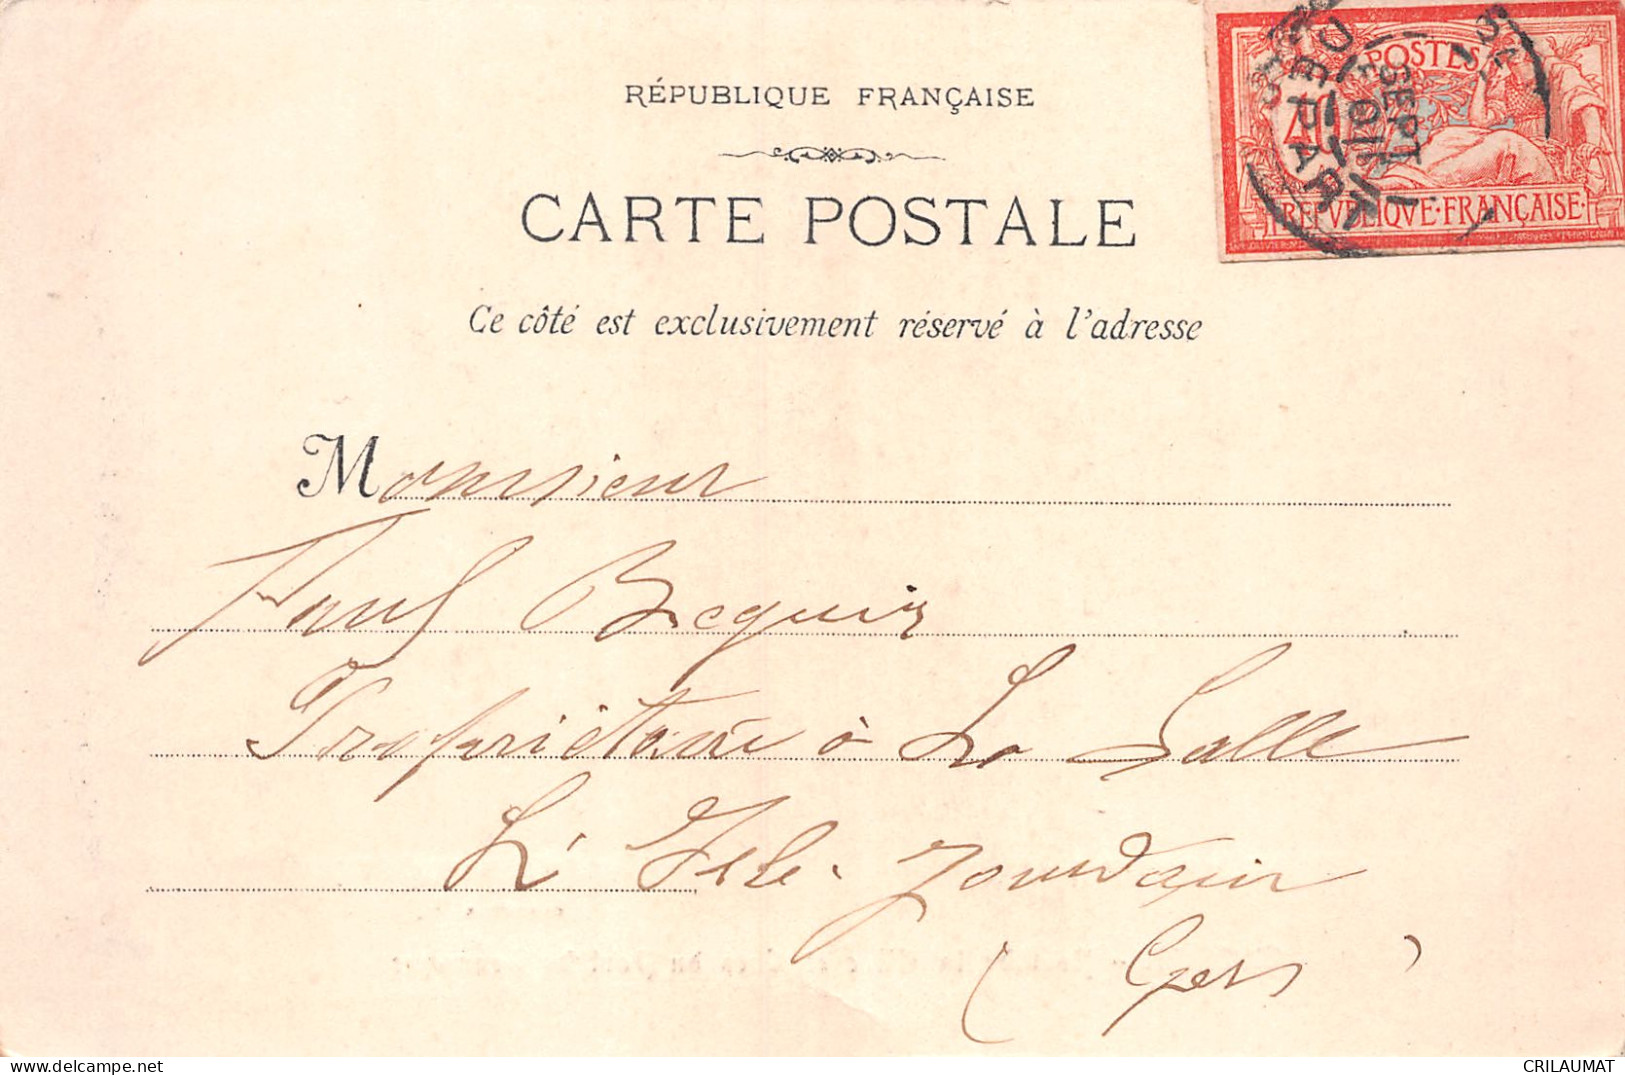 RÉPUBLIQUE FRANÇAISE
CARTE POSTALE
Ce côté est exclusivement réservé à l'adresse
POSTES
40
REPVBLIQVE·FRANÇAISE·
DEPART
SEPT
01
Monsieur
Paul Beguir
Propriétaire à La Salle
L' Isle-Jourdain
(Gers)
CRILAUMAT